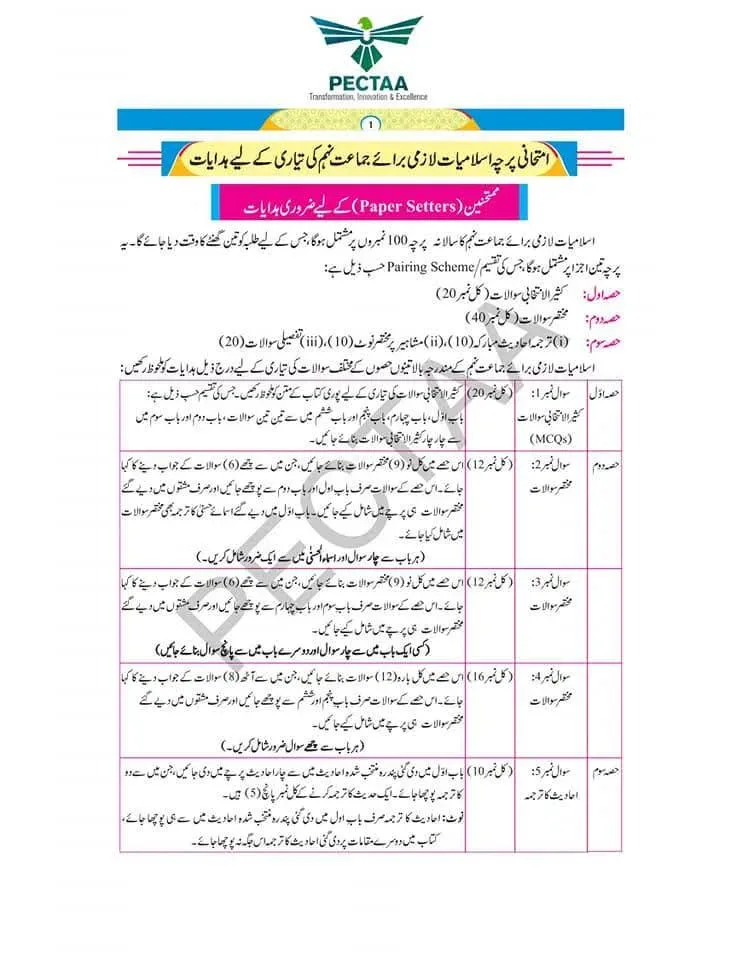 PECTAA
Transformation, Innovation & Excellence
1
امتحانی پرچہ اسلامیات لازمی برائے جماعت نہم کی تیاری کے لیے ہدایات
ممتحنین (Paper Setters) کے لیے ضروری ہدایات
اسلامیات لازمی برائے جماعت نہم کا سالانہ پرچہ 100 نمبروں پر مشتمل ہوگا، جس کے لیے طلبہ کو تین گھنٹے کا وقت دیا جائے گا۔ یہ
پرچہ تین اجزا پر مشتمل ہوگا، جس کی تقسیم/Pairing Scheme حسب ذیل ہے:
حصہ اول: کثیر الانتخابی سوالات (کل نمبر 20)
حصہ دوم: مختصر سوالات (کل نمبر 40)
حصہ سوم: (i) ترجمہ احادیث مبارکہ (10)، (ii) مشاہیر پر مختصر نوٹ (10)، (iii) تفصیلی سوالات (20)
اسلامیات لازمی برائے جماعت نہم کے مندرجہ بالا تینوں حصوں کے مختلف سوالات کی تیاری کے لیے درج ذیل ہدایات کو ملحوظ رکھیں:
حصہ اوّل
سوال نمبر 1:
کثیر الانتخابی سوالات
(MCQs)
(کل نمبر 20)
کثیر الانتخابی سوالات کی تیاری کے لیے پوری کتاب کے متن کو ملحوظ رکھیں۔ جس کی تقسیم حسب ذیل ہے:
باب اوّل، باب چہارم، باب پنجم اور باب ششم میں سے تین تین سوالات، باب دوم اور باب سوم میں
سے چار چار کثیر الانتخابی سوالات بنائے جائیں۔
حصہ دوم
سوال نمبر 2:
مختصر سوالات
(کل نمبر 12)
اس حصے میں کل نو (9) مختصر سوالات بنائے جائیں، جن میں سے چھے (6) سوالات کے جواب دینے کا کہا
جائے۔ اس حصے کے سوالات صرف باب اول اور باب دوم سے پوچھے جائیں اور صرف مشقوں میں دیے گئے
مختصر سوالات ہی پرچے میں شامل کیے جائیں۔ باب اوّل میں دیے گئے اسمائے حسنٰی کا ترجمہ بھی مختصر سوالات
میں شامل کیا جائے۔
(ہر باب سے چار سوال اور اسماء الحسنٰی میں سے ایک ضرور شامل کریں۔)
سوال نمبر 3:
مختصر سوالات
(کل نمبر 12)
اس حصے میں کل نو (9) مختصر سوالات بنائے جائیں، جن میں سے چھے (6) سوالات کے جواب دینے کا کہا
جائے۔ اس حصے کے سوالات صرف باب سوم اور باب چہارم سے پوچھے جائیں اور صرف مشقوں میں دیے گئے
مختصر سوالات ہی پرچے میں شامل کیے جائیں۔
(کسی ایک باب میں سے چار سوال اور دوسرے باب میں سے پانچ سوال بنائے جائیں)
سوال نمبر 4:
مختصر سوالات
(کل نمبر 16)
اس حصے میں کل بارہ (12) سوالات بنائے جائیں، جن میں سے آٹھ (8) سوالات کے جواب دینے کا کہا
جائے۔ اس حصے کے سوالات صرف باب پنجم اور ششم سے پوچھے جائیں اور صرف مشقوں میں دیے گئے
مختصر سوالات ہی پرچے میں شامل کیے جائیں۔
(ہر باب سے چھے سوال ضرور شامل کریں۔)
حصہ سوم
سوال نمبر 5:
احادیث کا ترجمہ
(کل نمبر 10)
باب اوّل میں دی گئی پندرہ منتخب شدہ احادیث میں سے چار احادیث پرچے میں دی جائیں، جن میں سے دو
کا ترجمہ پوچھا جائے۔ ایک حدیث کا ترجمہ کرنے کے کل نمبر پانچ (5) ہیں۔
نوٹ: احادیث کا ترجمہ صرف باب اول میں دی گئی پندرہ منتخب شدہ احادیث میں سے ہی پوچھا جائے،
کتاب میں دوسرے مقامات پر دی گئی احادیث کا ترجمہ اس جگہ نہ پوچھا جائے۔
PECTAA